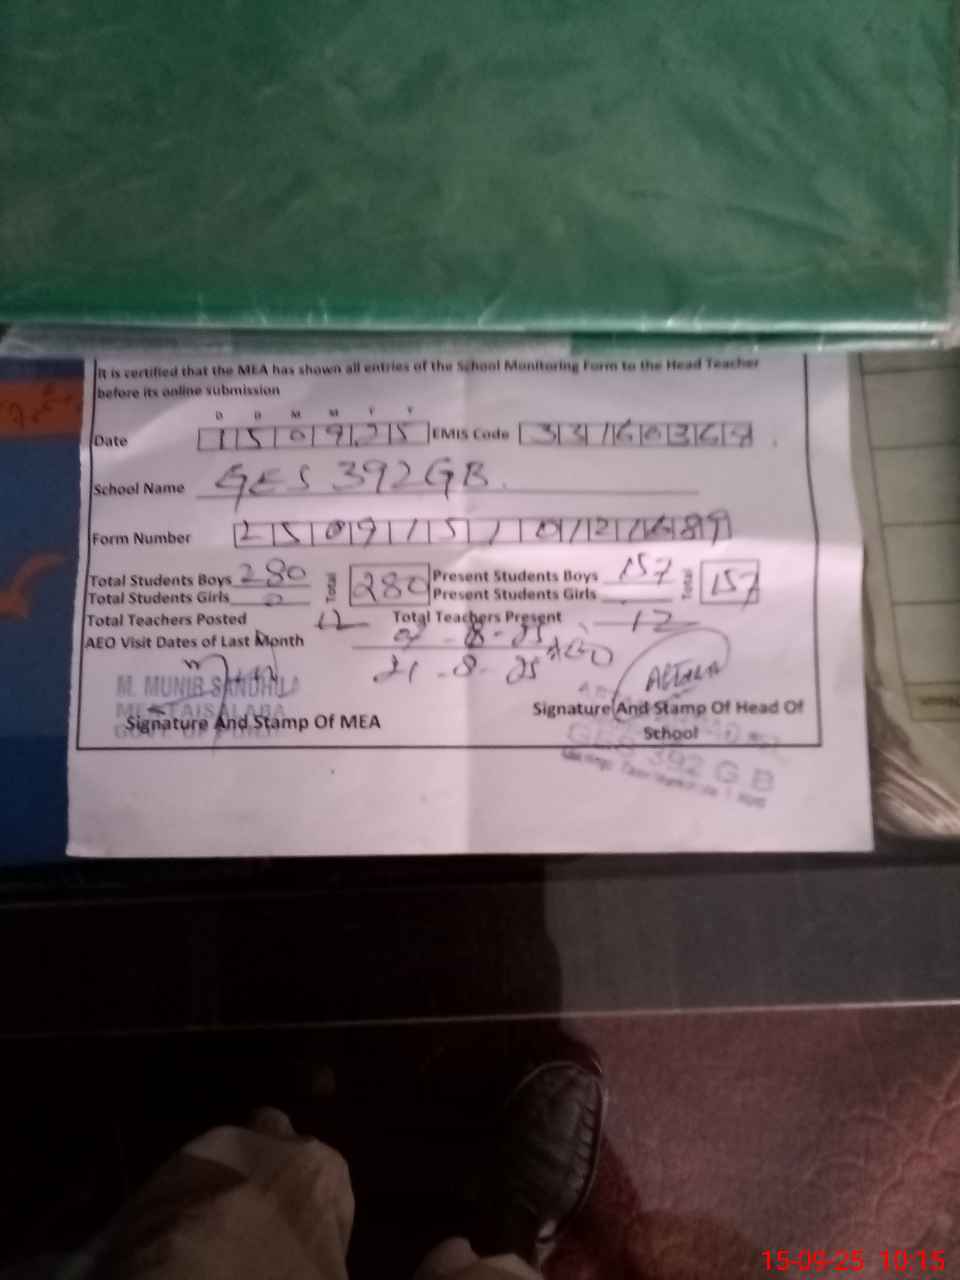 It is certified that the MEA has shown all entries of the School Monitoring Form to the Head Teacher
before its online submission
D D M M Y Y
Date 150925 EMIS Code 33160364
School Name GES 392 GB.
Form Number
Total Students Boys 280 Total 280 Present Students Boys 157 Total 157
Total Students Girls 0 Present Students Girls
Total Teachers Posted 12 Total Teachers Present 12
AEO Visit Dates of Last Month - 8 - 25
21 - 8 - 25 AEO
M. MUNIR SANDHILA
Signature And Stamp Of MEA
Signature And Stamp Of Head Of
School
GES 392 G.B
15-09-25 10:15